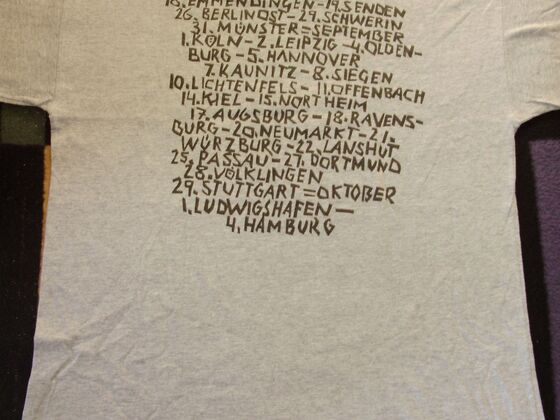 18. EMMENDINGEN – 19. SENDEN
26. BERLIN OST – 29. SCHWERIN
31. MÜNSTER = SEPTEMBER
1. KÖLN – 2. LEIPZIG – 4. OLDEN-
BURG – 5. HANNOVER
7. KAUNITZ – 8. SIEGEN
10. LICHTENFELS – 11. OFFENBACH
14. KIEL – 15. NORTHEIM
17. AUGSBURG – 18. RAVENS-
BURG – 20. NEUMARKT – 21.
WÜRZBURG – 22. LANSHUT
25. PASSAU – 27. DORTMUND
28. VÖLKLINGEN
29. STUTTGART = OKTOBER
1. LUDWIGSHAFEN —
4. HAMBURG